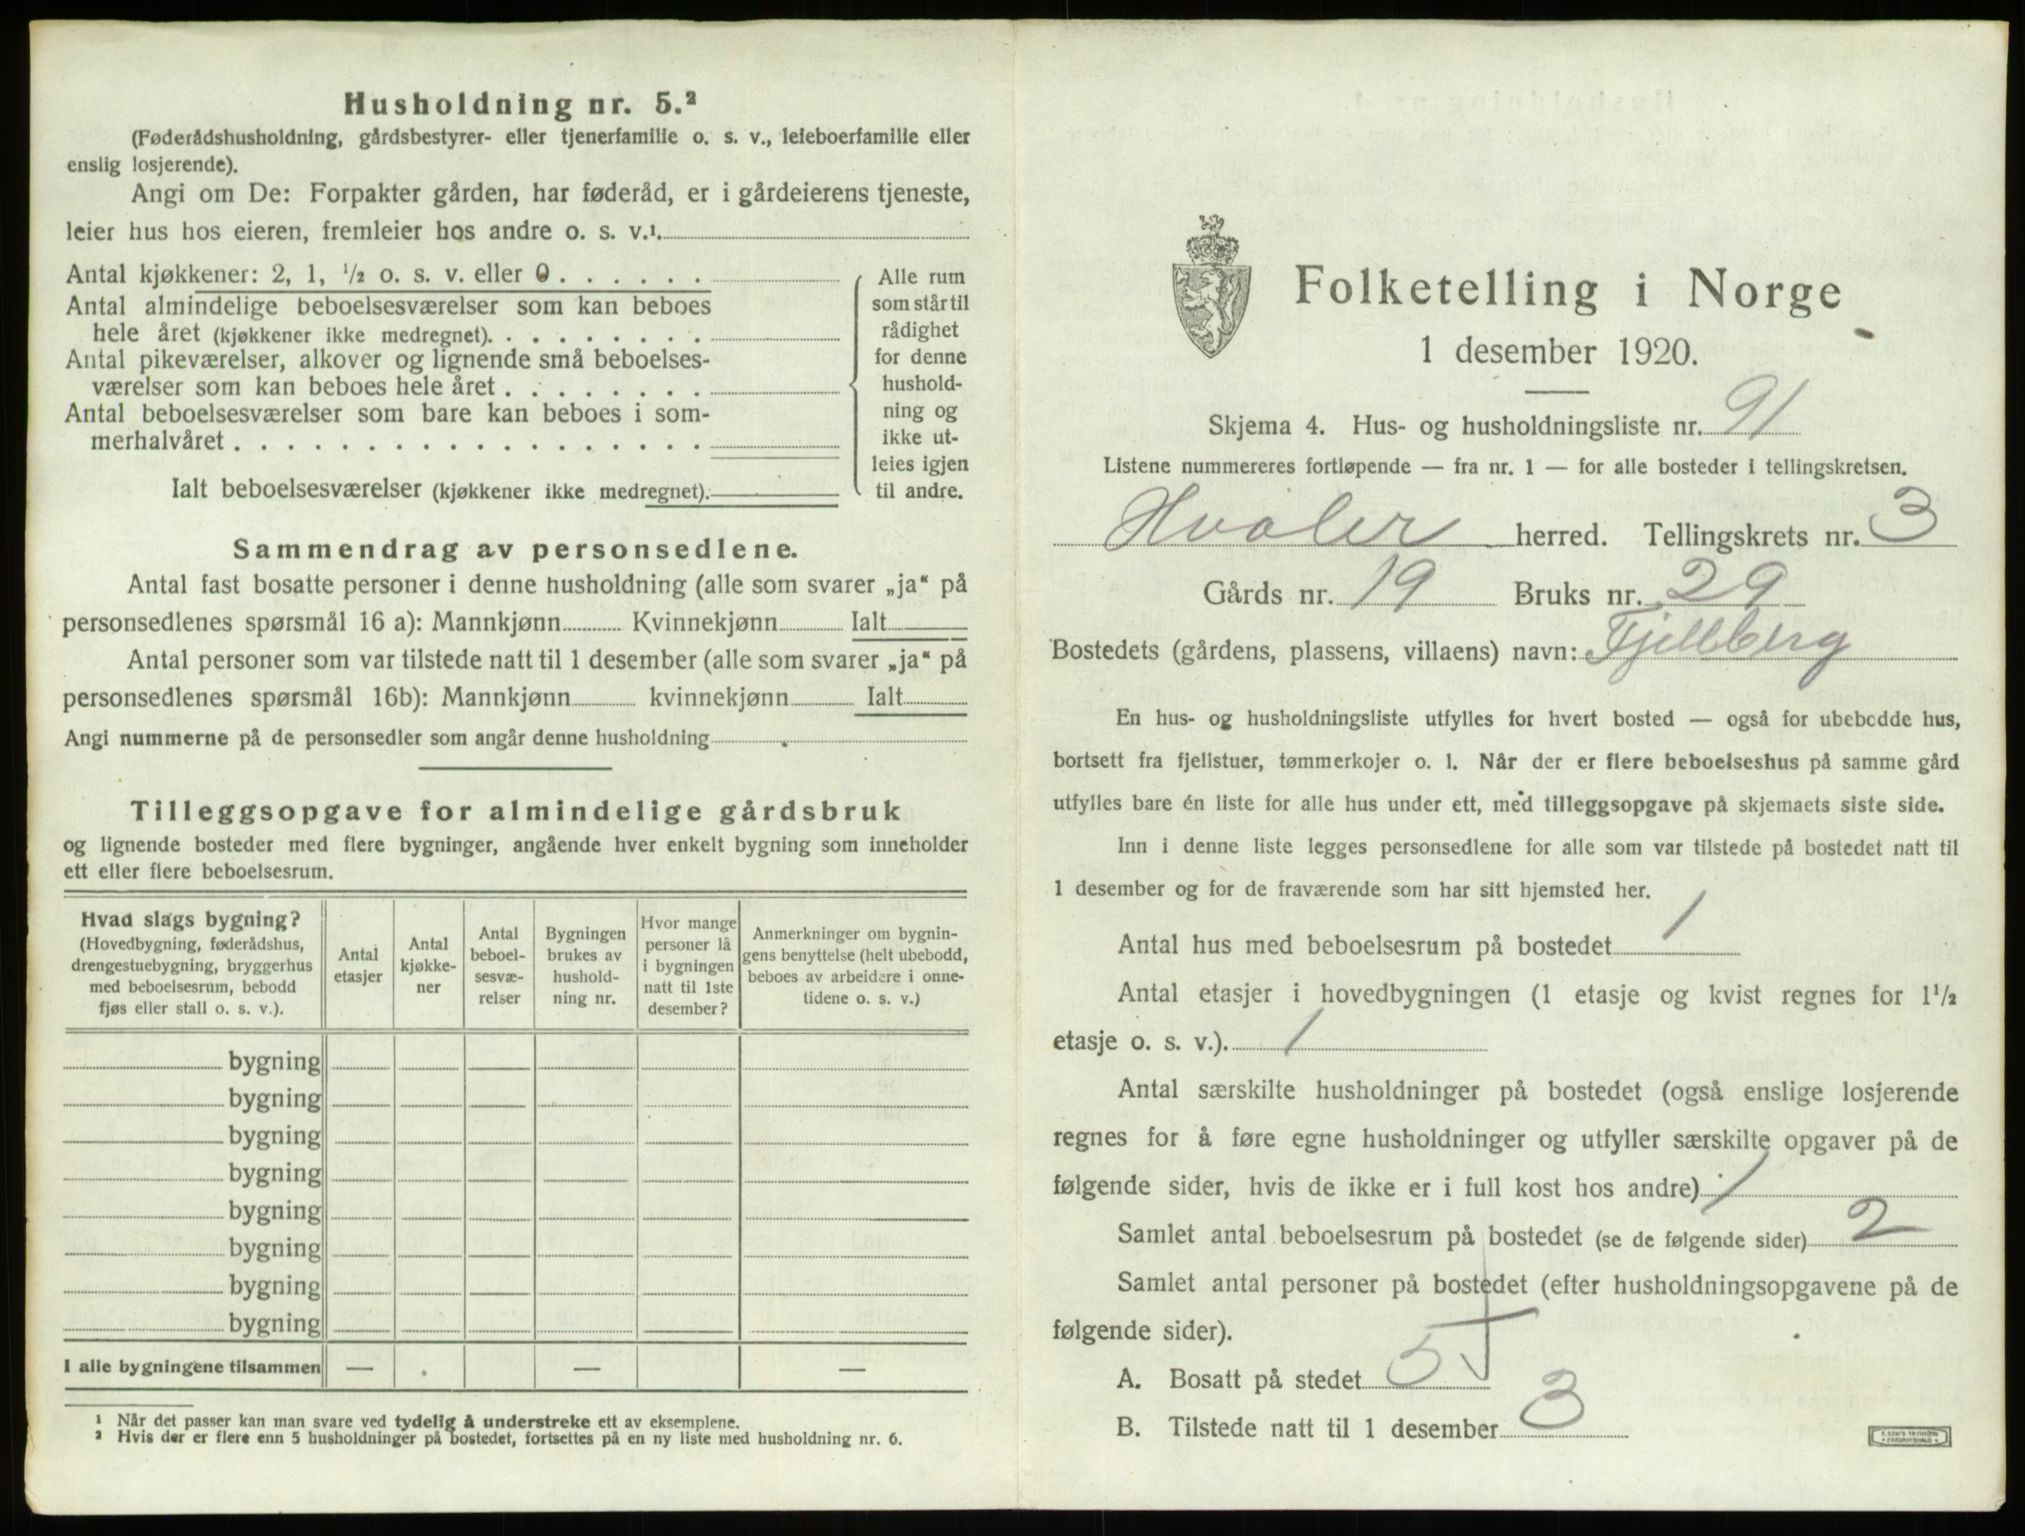 Husholdning nr. 5.²
(Føderådshusholdning, gårdsbestyrer- eller tjenerfamilie o. s. v., leieboerfamilie eller
enslig losjerende).
Angi om De: Forpakter gården, har føderåd, er i gårdeierens tjeneste,
leier hus hos eieren, fremleier hos andre o. s. v.¹
Antal kjøkkener: 2, 1, ½ o. s. v. eller 0 . . . . . .
Antal almindelige beboelsesværelser som kan beboes
hele året (kjøkkener ikke medregnet). . . . . . . . .
Antal pikeværelser, alkover og lignende små beboelses-
værelser som kan beboes hele året . . . . . . . .
Antal beboelsesværelser som bare kan beboes i som-
merhalvåret . . . . . . . . . . . . . . . . . .
Ialt beboelsesværelser (kjøkkener ikke medregnet).
Alle rum
som står til
rådighet
for denne
hushold-
ning og
ikke ut-
leies igjen
til andre.
Sammendrag av personsedlene.
Antal fast bosatte personer i denne husholdning (alle som svarer „ja“ på
personsedlenes spørsmål 16 a): Mannkjønn Kvinnekjønn Ialt
Antal personer som var tilstede natt til 1 desember (alle som svarer „ja“ på
personsedlenes spørsmål 16b): Mannkjønn kvinnekjønn Ialt
Angi nummerne på de personsedler som angår denne husholdning
Tilleggsopgave for almindelige gårdsbruk
og lignende bosteder med flere bygninger, angående hver enkelt bygning som inneholder
ett eller flere beboelsesrum.
Hvad slags bygning?
(Hovedbygning, føderådshus,
drengestuebygning, bryggerhus
med beboelsesrum, bebodd
fjøs eller stall o. s. v.).
Antal
etasjer
Antal
kjøkke-
ner
Antal
beboel-
sesvæ-
relser
Bygningen
brukes av
hushold-
ning nr.
Hvor mange
personer lå
i bygningen
natt til 1ste
desember?
Anmerkninger om bygnin-
gens benyttelse (helt ubebodd,
beboes av arbeidere i onne-
tidene o. s. v.)
bygning
bygning
bygning
bygning
bygning
bygning
bygning
bygning
I alle bygningene tilsammen — — —
¹ Når det passer kan man svare ved tydelig å understreke ett av eksemplene.
² Hvis der er flere enn 5 husholdninger på bostedet, fortsettes på en ny liste med husholdning nr. 6.
Folketelling i Norge
1 desember 1920.
Skjema 4. Hus- og husholdningsliste nr. 91
Listene nummereres fortløpende — fra nr. 1 — for alle bosteder i tellingskretsen.
Hvaler herred. Tellingskrets nr. 3
Gårds nr. 19 Bruks nr. 29
Bostedets (gårdens, plassens, villaens) navn: Fjellberg
En hus- og husholdningsliste utfylles for hvert bosted — også for ubebodde hus,
bortsett fra fjellstuer, tømmerkojer o. l. Når der er flere beboelseshus på samme gård
utfylles bare én liste for alle hus under ett, med tilleggsopgave på skjemaets siste side.
Inn i denne liste legges personsedlene for alle som var tilstede på bostedet natt til
1 desember og for de fraværende som har sitt hjemsted her.
Antal hus med beboelsesrum på bostedet 1
Antal etasjer i hovedbygningen (1 etasje og kvist regnes for 1½
etasje o. s. v.). 1
Antal særskilte husholdninger på bostedet (også enslige losjerende
regnes for å føre egne husholdninger og utfyller særskilte opgaver på de
følgende sider, hvis de ikke er i full kost hos andre) 1
Samlet antal beboelsesrum på bostedet (se de følgende sider) 2
Samlet antal personer på bostedet (efter husholdningsopgavene på de
følgende sider).
A. Bosatt på stedet 5
B. Tilstede natt til 1 desember 3